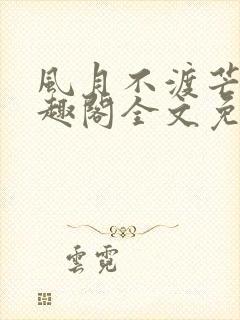 風月不渡芒
趣閣全文免
雲霓